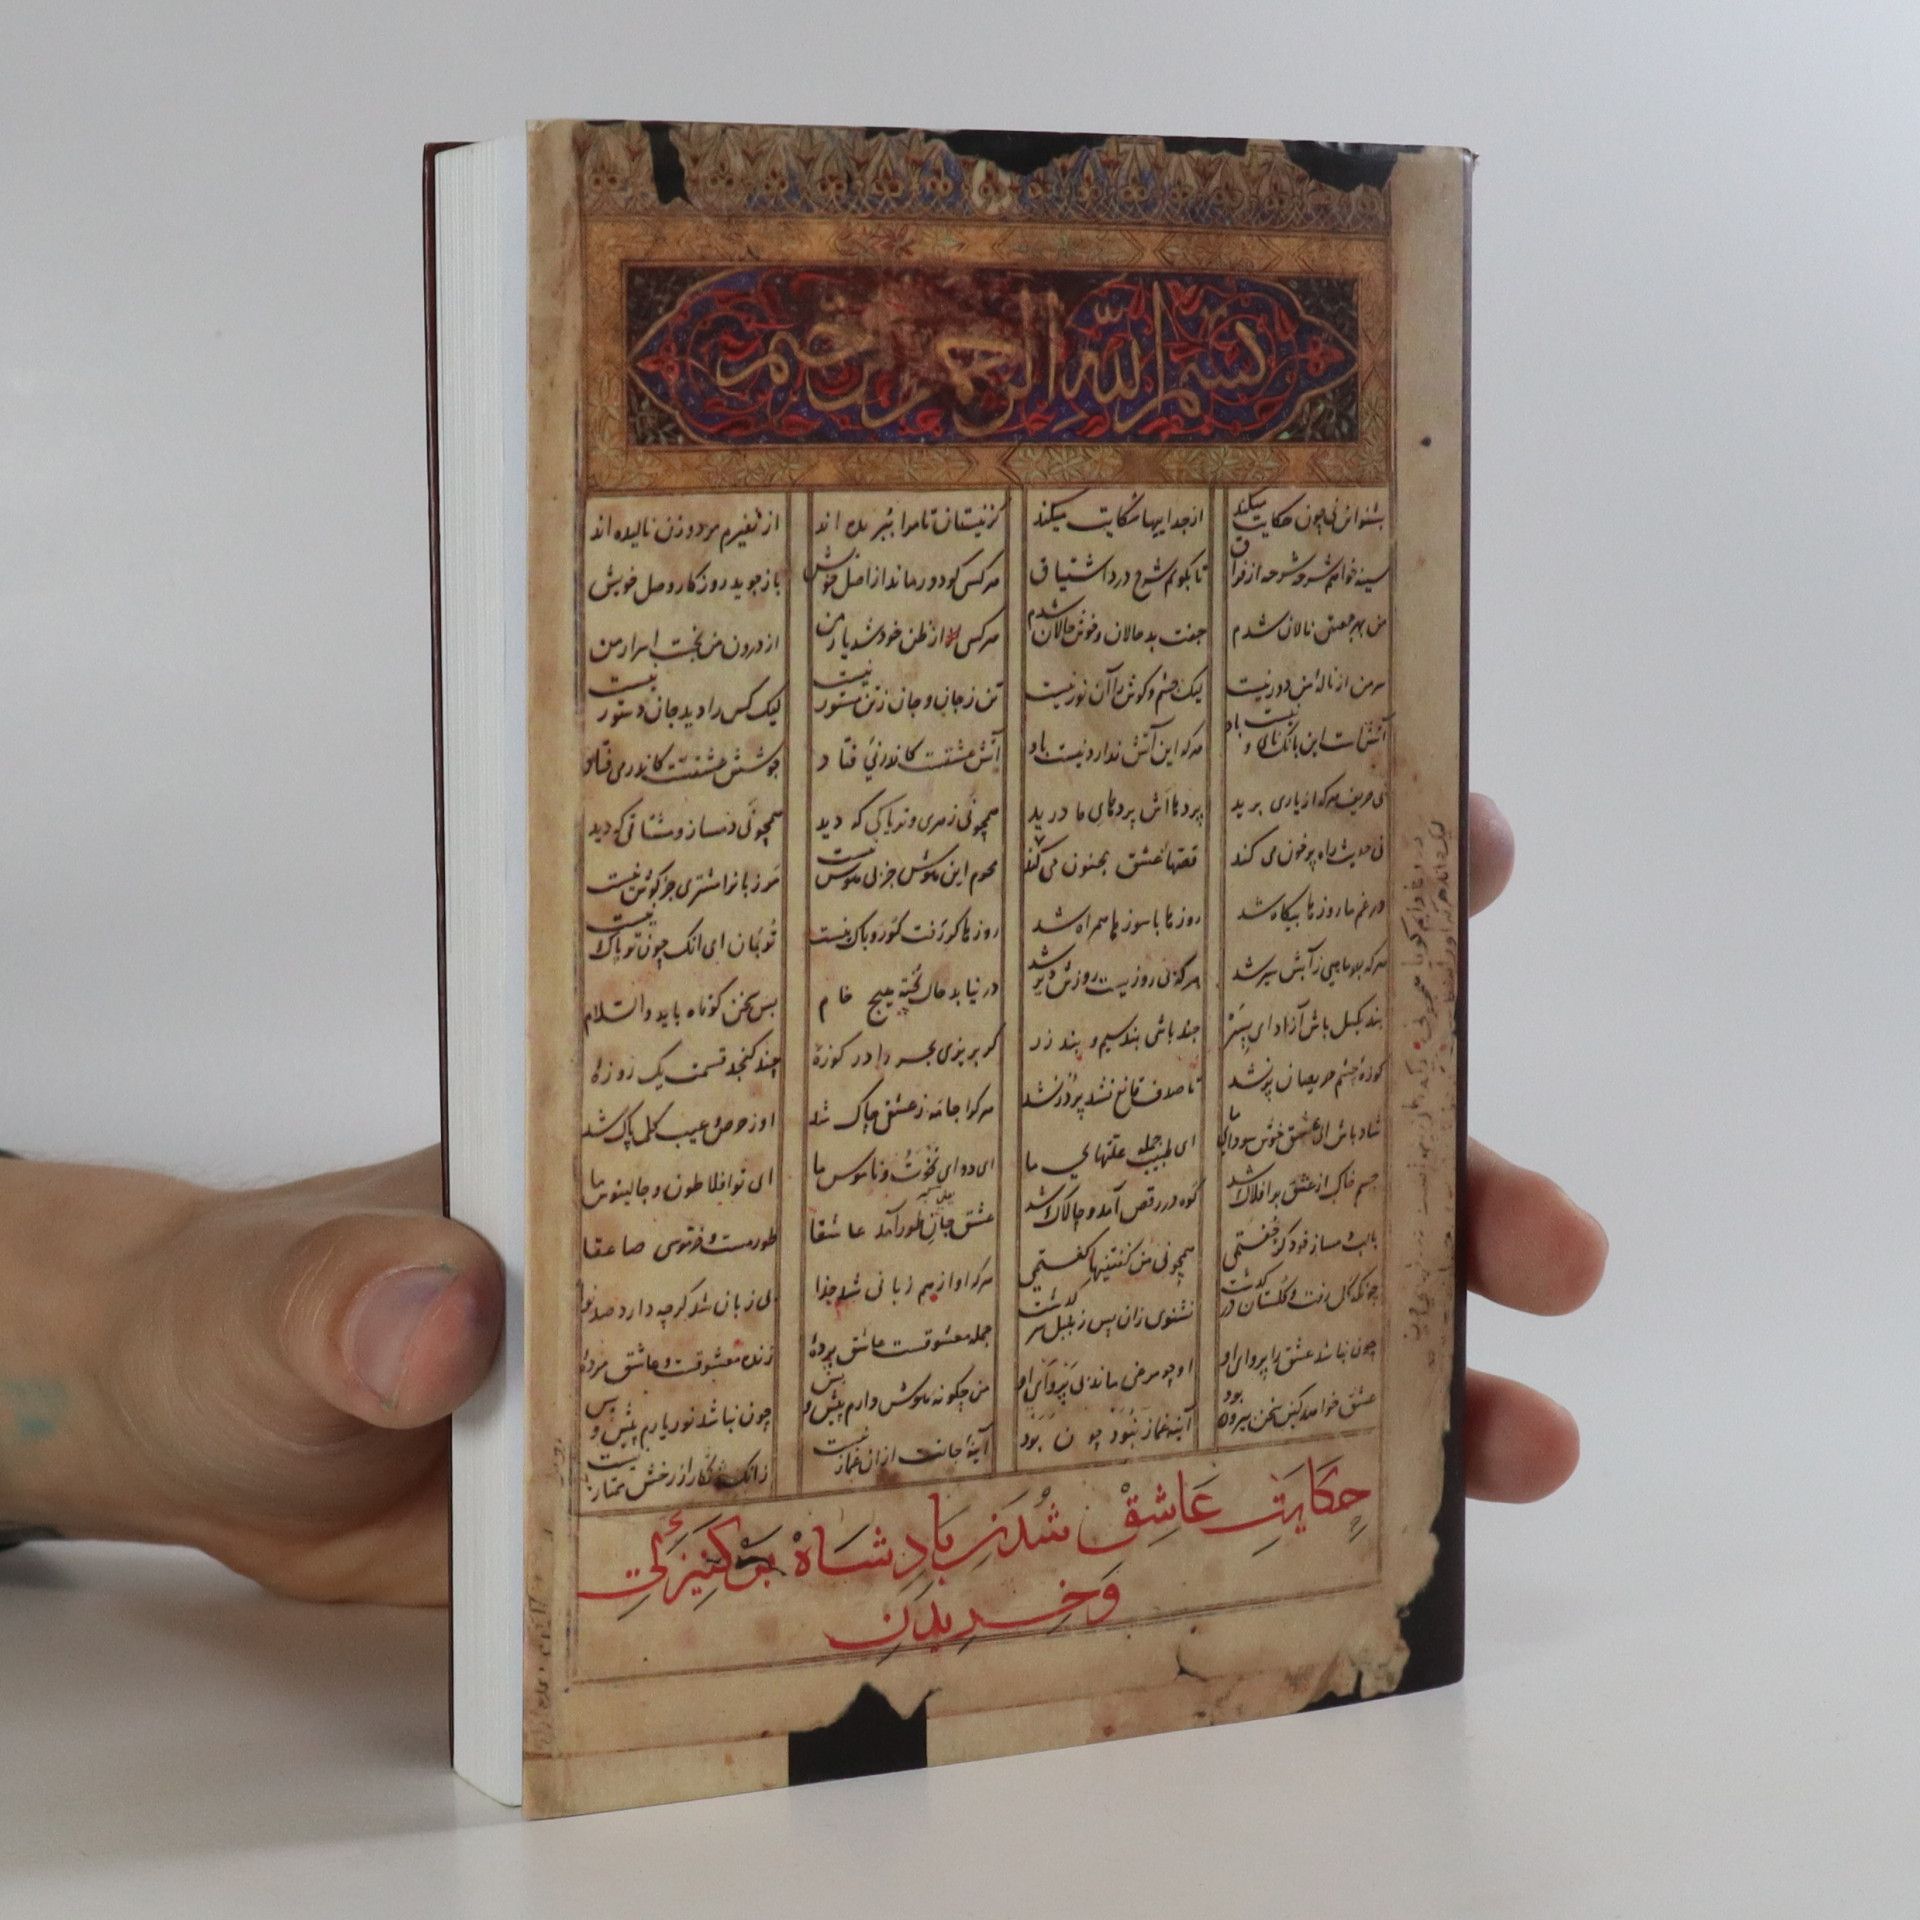 بسم الله الرحمن الرحیم
بشنو این نی چون حکایت میکند از جداییها شکایت میکند کز نیستان تا مرا ببریده اند از نفیرم مرد و زن نالیده اند
سینه خواهم شرحه شرحه از فراق تا بکویم شرح درد اشتیاق هر کسی کو دور ماند از اصل خویش باز جوید روزکار وصل خویش
من بهر جمعیتی نالان شدم جفت بد حالان و خوش حالان شدم هر کسی از ظن خود شد یار من از درون من نجست اسرار من
سر من از نالهٔ من دور نیست لیک چشم و کوش را آن نور نیست تن ز جان و جان ز تن مستور نیست لیک کس را دید جان دستور نیست
آتشست این بانک نای و نیست باد هر که این آتش ندارد نیست باد آتش عشقست کاندر نی فتاد جوشش عشقست کاندر می فتاد
نی حریف هر که از یاری برید پردهااش پردهای ما درید همچو نی زهری و تریاکی که دید همچو نی دمساز و مشتاقی که دید
نی حدیث راه پر خون می کند قصهاء عشق مجنون می کند محرم این هوش جز بی هوش نیست مر زبانرا مشتری جز کوش نیست
در غم ما روزها بیکاه شد روزها با سوزها همراه شد روزها کر رفت کو رو باک نیست تو بمان ای آنک چون تو پاک نیست
هر که جز ماهی ز آبش سیر شد هرکه بی روزیست روزش دیر شد در نیابد حال پخته هیچ خام بس سخن کوتاه باید والسلام
بند بکسل باش آزاد ای پسر چند باشی بند سیم و بند زر کر بریزی بحر را در کوزهٔ چند کنجد قسمت یک روزهٔ
کوزهٔ چشم حریصان پر نشد تا صدف قانع نشد پر در نشد هر کرا جامه ز عشقی چاک شد او ز حرص و عیب کلی پاک شد
شاد باش ای عشق خوش سودای ما ای طبیب جمله علتهای ما ای دوای نخوت و ناموس ما ای تو افلاطون و جالینوس ما
جسم خاک از عشق بر افلاک شد کوه در رقص آمد و چالاک شد عشق جان طور آمد عاشقا طور مست و خر موسی صاعقا
با لب دمساز خود کر جفتمی همچو نی من کفتنیها کفتمی هر که او از هم زبانی شد جدا بی زبان شد کرچه دارد صد نوا
چونکه کل رفت و کلستان در کذشت نشنوی زان پس ز بلبل سر کذشت جمله معشوقست و عاشق پردهٔ زنده معشوقست و عاشق مردهٔ
چون نباشد عشق را پروای او او چو مرغی ماند بی پر وای او من چکونه هوش دارم پیش و پس چون نباشد نور یارم پیش و پس
عشق خواهد کین سخن بیرون بود آینه غماز نبود چون بود آینهٔ جانت از آن غماز نیست زانک زنکار از رخش ممتاز نیست
حِکَایَتِ عَاشِقْ شُدَنِ بَادِشَاهْ بَر کَنِیزَکِی
وَخَرِیدَنِ